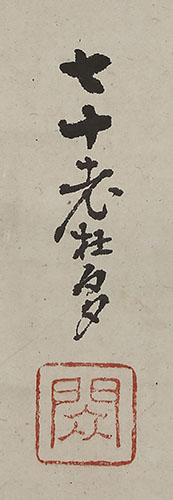 七十老杜多
閦